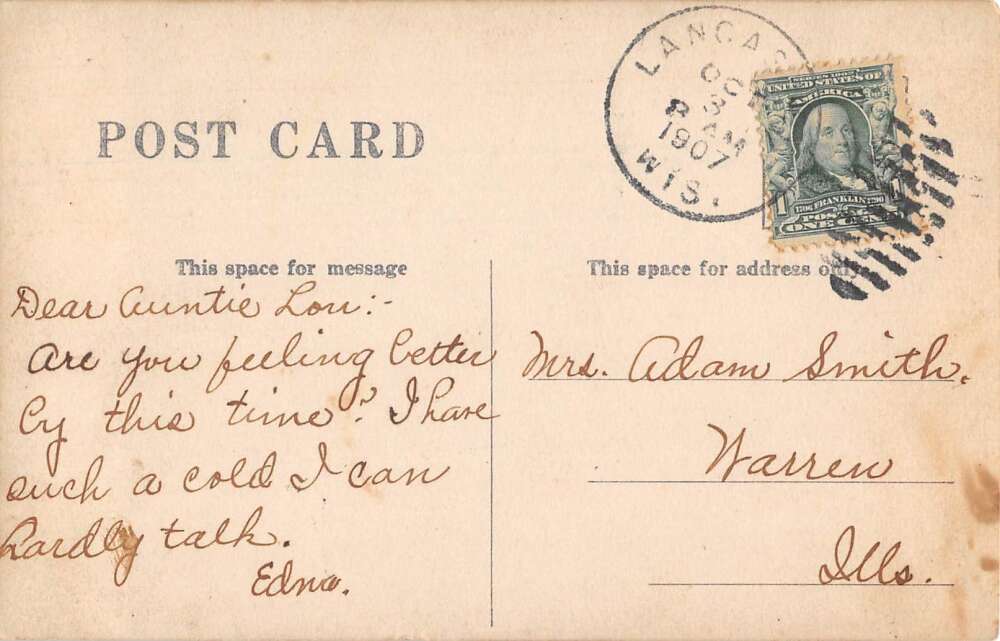 POST CARD
LANCAS
OCT
3
8 AM
1907
WIS.
SERIES 1902
UNITED STATES OF
AMERICA
1706 FRANKLIN 1790
POSTAGE
ONE CENT
This space for message
Dear Auntie Lou:-
Are you feeling better
by this time? I have
such a cold I can
hardly talk.
Edna.
This space for address only
Mrs. Adam Smith.
Warren
Ills.